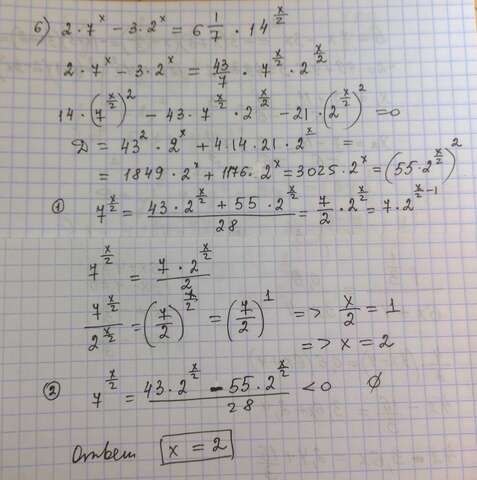 б) 2·7^x − 3·2^x = 6 1/7 · 14^(x/2)
2·7^x − 3·2^x = 43/7 · 7^(x/2) · 2^(x/2)
14·(7^(x/2))^2 − 43·7^(x/2)·2^(x/2) − 21·(2^(x/2))^2 = 0
D = 43^2·2^x + 4·14·21·2^x =
= 1849·2^x + 1176·2^x = 3025·2^x = (55·2^(x/2))^2
① 7^(x/2) = (43·2^(x/2) + 55·2^(x/2))/28 = 7/2·2^(x/2) = 7·2^(x/2−1)
7^(x/2) = (7·2^(x/2))/2
7^(x/2)/2^(x/2) = (7/2)^(x/2) = (7/2)^1 => x/2 = 1
=> x = 2
② 7^(x/2) = (43·2^(x/2) − 55·2^(x/2))/28 < 0 ∅
Ответ x = 2